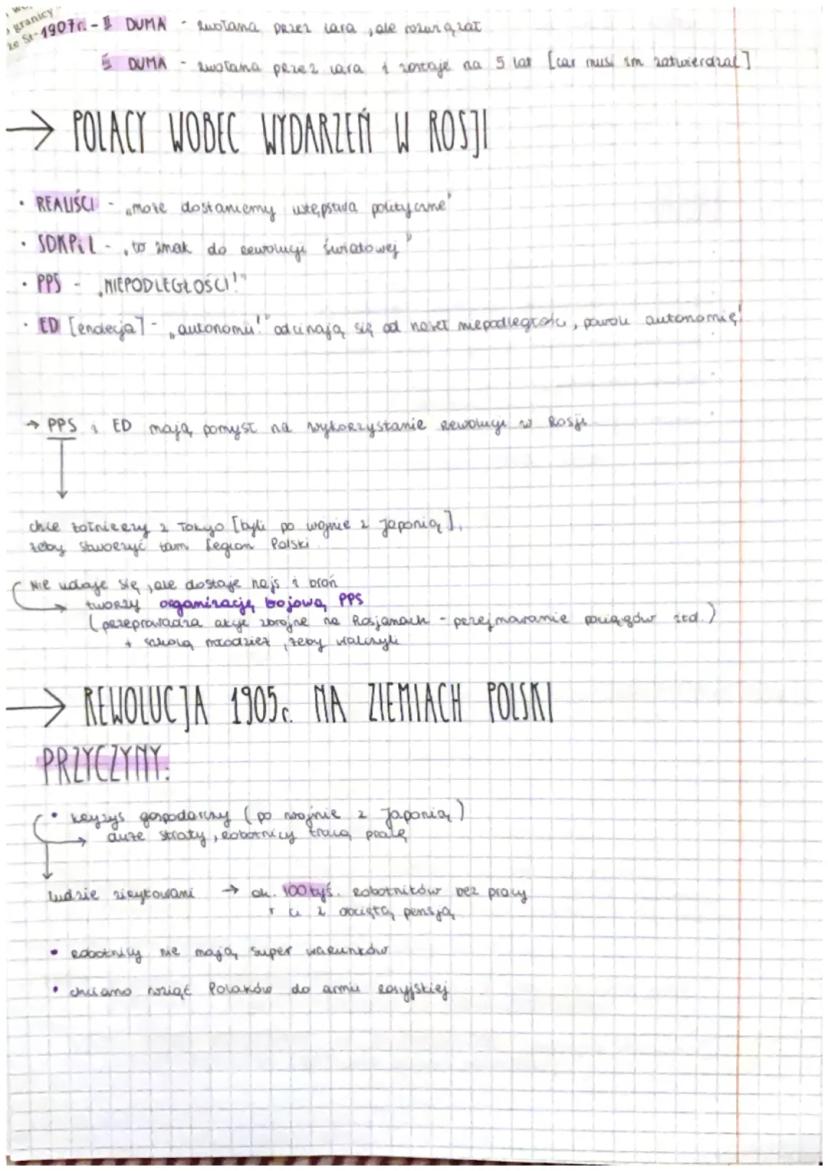 granicy
1907r. - II DUMA - zwołana przez cara, ale rozwiązał
III DUMA - zwołana przez cara i zostaje na 5 lat [car musi im zatwierdzać]
→ POLACY WOBEC WYDARZEŃ W ROSJI
• REALIŚCI - „może dostaniemy ustępstwa polityczne"
• SDKPiL - „to znak do rewolucji światowej"
• PPS - „NIEPODLEGŁOŚCI!"
• ED [endecja] - „autonomii!" odcinają się od haseł niepodległości, powoli autonomię!
→ PPS i ED mają pomysł na wykorzystanie rewolucji w Rosji
chce żołnierzy z Tokyo [byli po wojnie z Japonią],
żeby stworzyć tam Legion Polski
Nie udaje się, ale dostaje hajs i broń
→ tworzy organizację bojową PPS
(przeprowadza akcje zbrojne na Rosjanach - przejmowanie pociągów itd.)
+ szkolą młodzież, żeby walczyli
→ REWOLUCJA 1905r. NA ZIEMIACH POLSKI
PRZYCZYNY:
• kryzys gospodarczy (po wojnie z Japonią)
→ duże straty, robotnicy tracą pracę
ludzie zirytowani → ok. 100 tyś. robotników bez pracy
+ ci z obciętą pensją
• robotnicy nie mają super warunków
• chciano wziąć Polaków do armii rosyjskiej